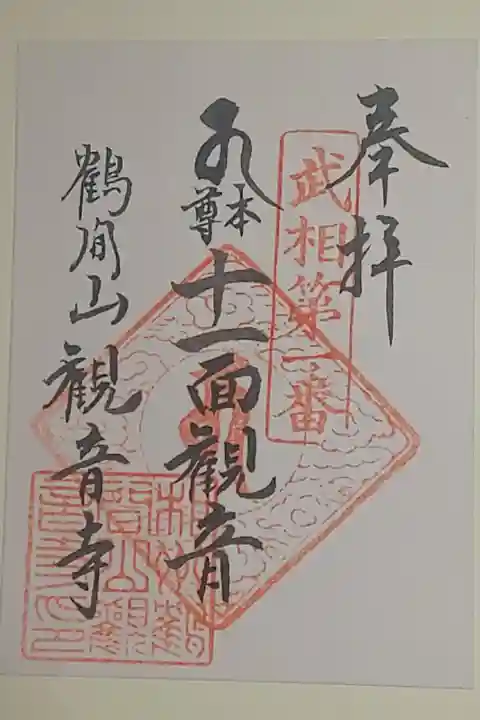 奉拝
武相第一番
本尊
十一面観音
鶴間山観音寺